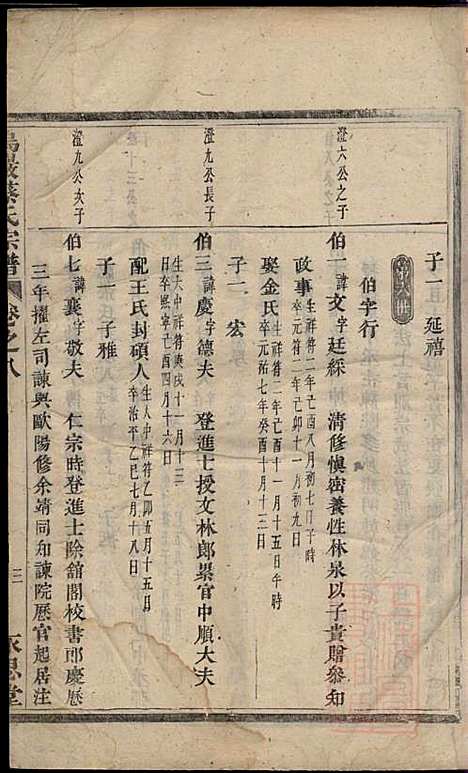 子一 延禧
伯字行
澄六公之子
伯一 諱文字廷綵 清修愼密養性林泉以子貴贈參知
政事 生祥符二年己酉八月初七日子時
卒元符二年己卯十一月初九日
娶金氏 生祥符二年己酉十一月十五日午時
卒元祐七年癸酉十月十三日
子一 宏
澄九公長子
伯三 諱慶字德夫 登進士授文林郎累官中順大夫
生大中祥符庚戌十一月十三
日卒熙寧癸丑四月十六日
配王氏封碩人 生大中祥符乙卯五月十五日
卒治平乙巳七月十八日
子一 子雅
澄九公次子
伯七 諱襄字敬夫 仁宗時登進士除舘閣校書郎慶歷
三年擢左司諫與歐陽修余靖同知諫院歷官起居注
蔡氏宗譜 卷之八
三
永思堂